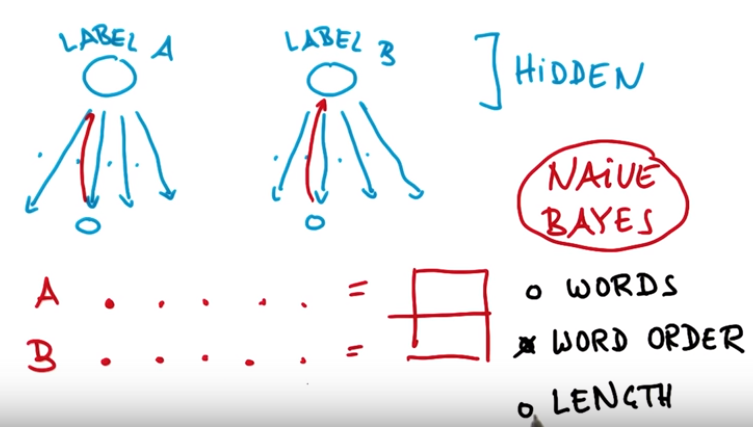 LABEL A
LABEL B
HiDDEN
NAiVE
BAYES
A . . . . . =
B . . . . . =
WORDS
WORD ORDER
LENGTH